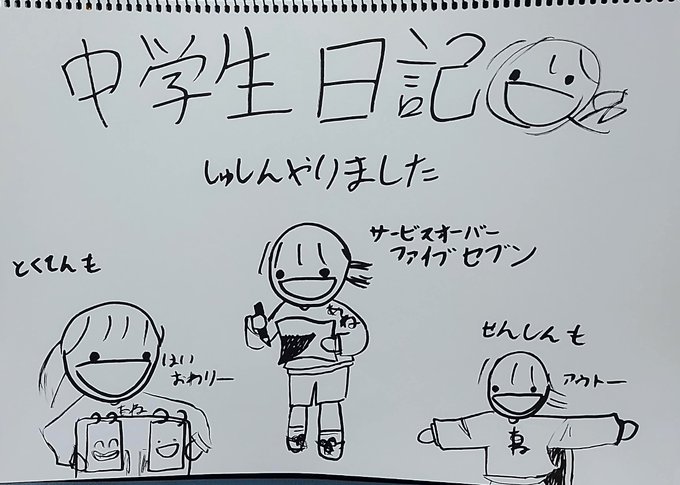 中学生日記
しゅしんやりました
サービスオーバー
ファイブセブン
とくてんも
はい
おわりー
せんしんも
アウトー